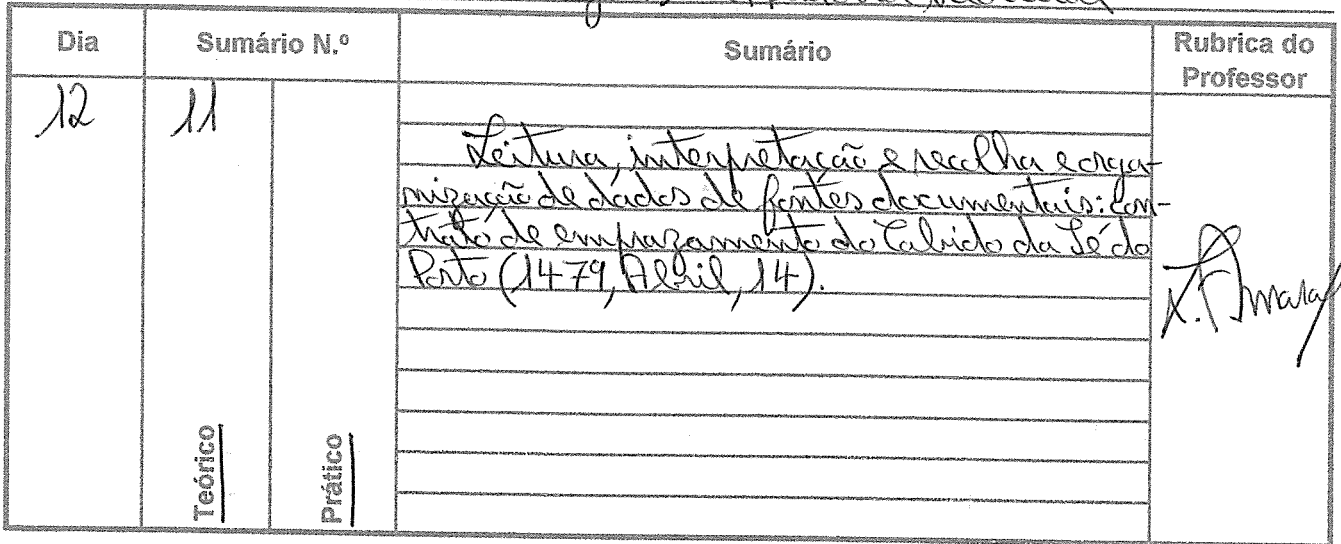 Dia
Sumário N.º
Sumário
Rubrica do
Professor
12
11
Leitura, interpretação e recolha e orga-
nização de dados de fontes documentais: con-
trato de emprazamento do Cabido da Sé do
Porto (1479, Abril, 14).
Amaral
Teórico
Prático